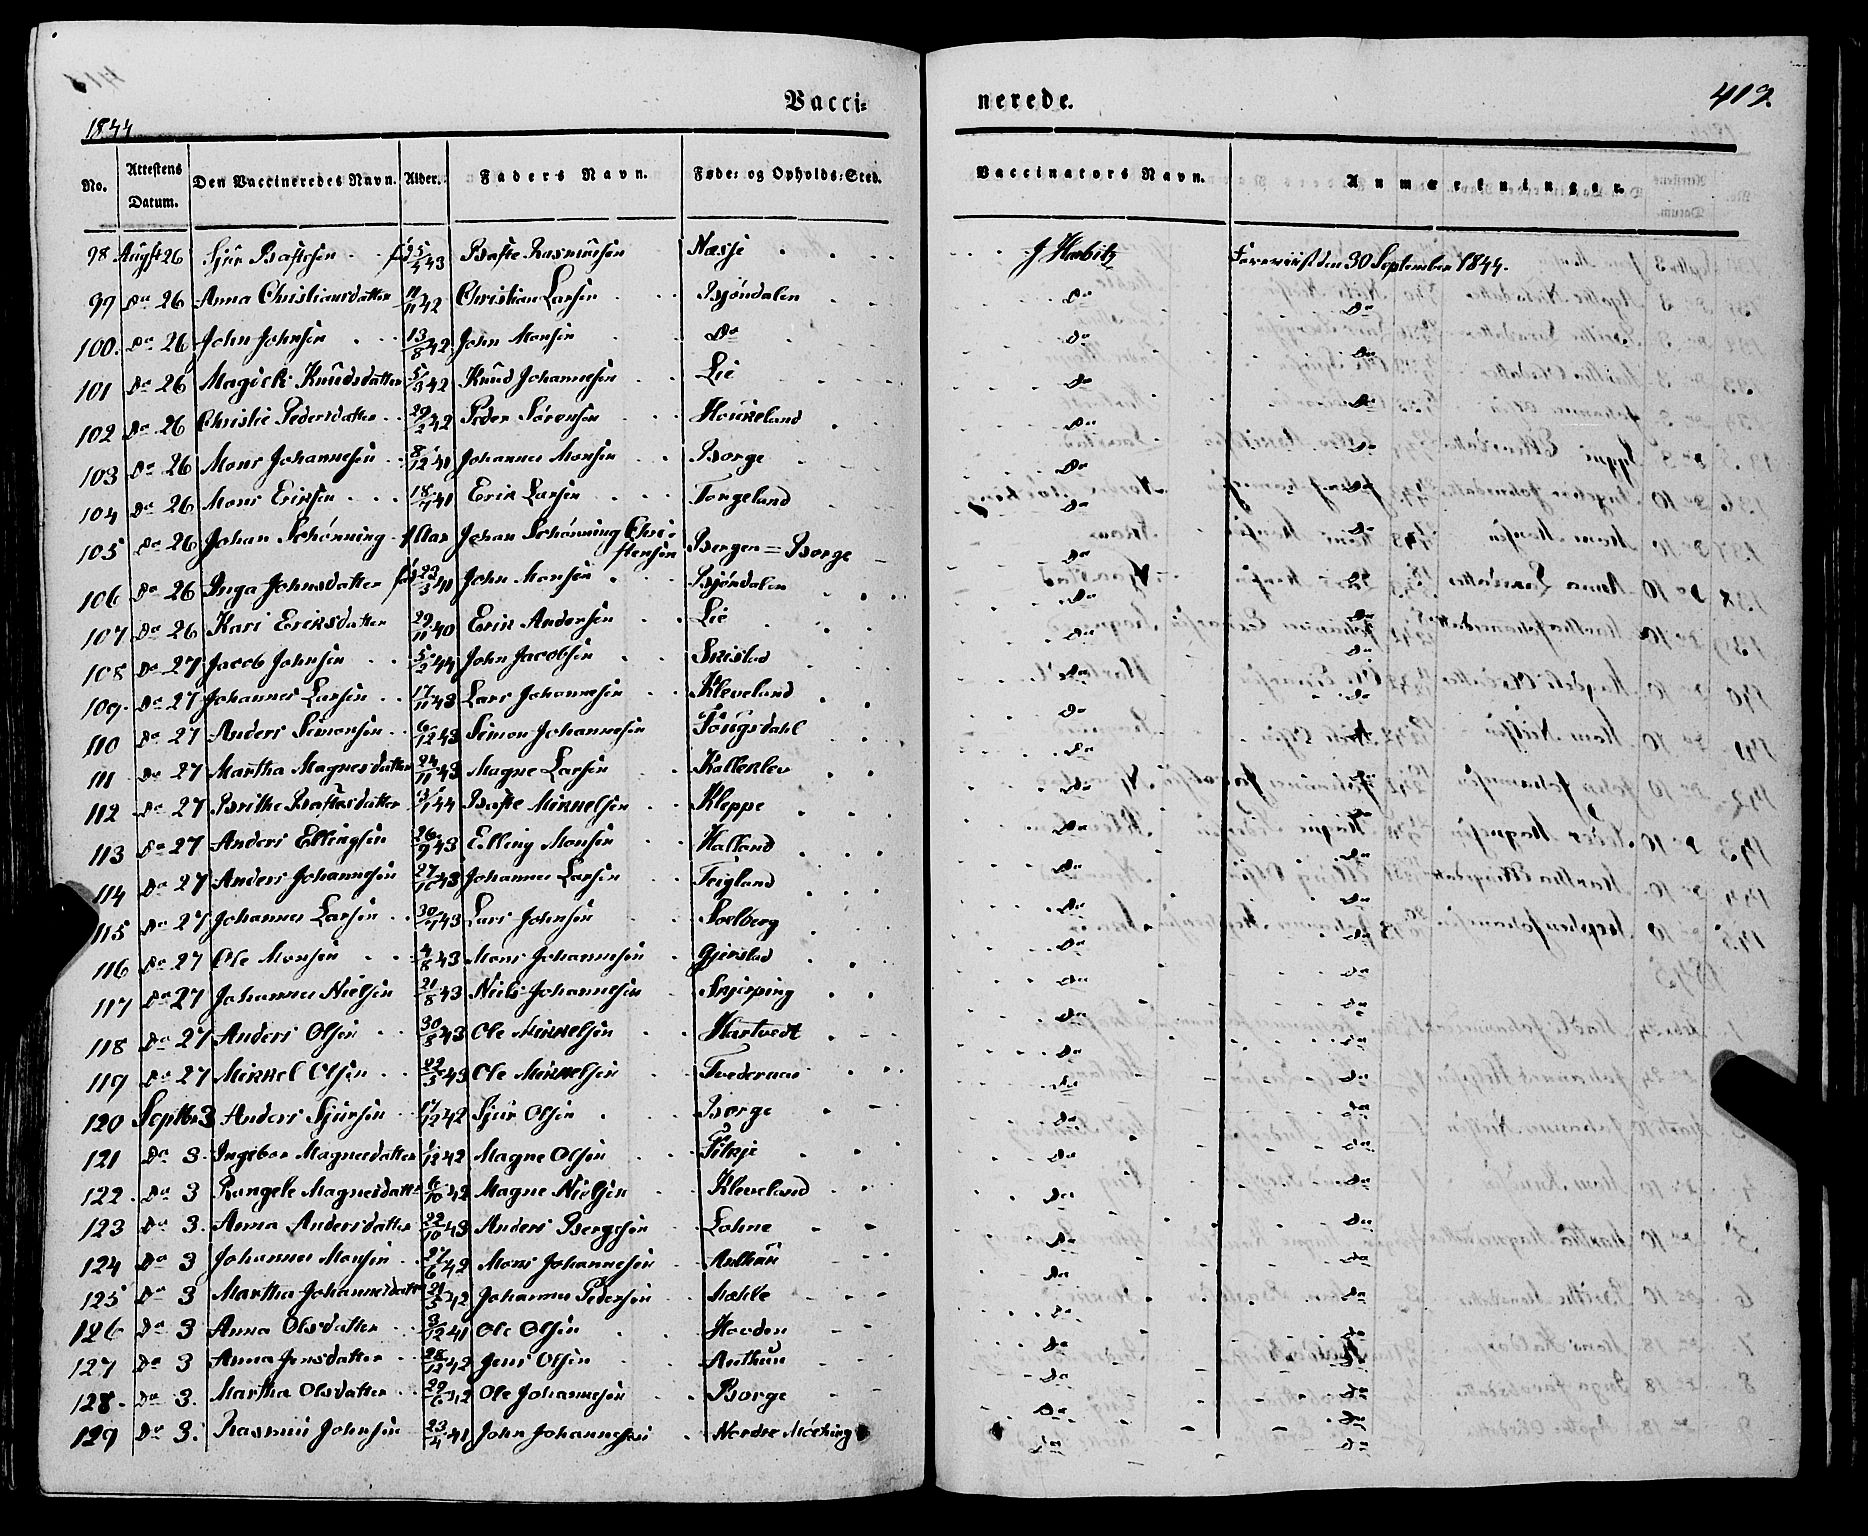 Vacci= nerede. 419.
1844
No. Attestens Datum. Den Vaccineredes Navn. Alder. Faders Navn. Føde= og Opholds=Sted. Vaccinators Navn. Anmærkninger.
98 Augst 26 Sjur Baftesen 43 Bafte Rasmussen Næsse J Harbitz Foreviist den 30 September 1844.
99 Do 26 Anna Christiansdatter 42 Christian Larsen Bjøndalen Do Do
100. Do 26 John Johnsen 13/8 42 John Monsen Do Do Do
101 Do 26 Knudsdatter 5/3 42 Knud Johannesen Lie Do Do
102 Do 26 Christie Pedersdatter 29/2 42 Peder Sørensen Houkeland Do Do
103 Do 26 Mons Johannesen 8/12 41 Johannes Monsen Borge Do Do
104 Do 26 Mons Eriksen 18/7 41 Erik Larsen Torgeland Do Do
105 Do 26 Johan Schønning 1 Aar Johan Schønning Chri-
stensen Bergen = Borge Do Do
106 Do 26 Inga Johnsdatter 23/3 41 John Monsen Bjøndalen Do Do
107 Do 26 Kari Eriksdatter 29/11 40 Erik Andersen Lie Do Do
108 Do 27 Jacob Johnsen 5/2 44 John Jacobsen Skistad Do Do
109. Do 27 Johannes Larsen 17/11 43 Lars Johannesen Kleveland Do Do
110 Do 27 Anders Simonsen 6/12 43 Simon Johannesen Tougsdahl Do Do
111 Do 27 Martha Magnesdatter 24/11 43 Magne Larsen Kalleklev Do Do
112 Do 27 Brithe Baftesdatter 44 Bafte Mikkelsen Kleppe Do Do
113 Do 27 Anders Ellingsen 26/9 43 Elling Monsen Halland Do Do
114 Do 27 Anders Johannesen 27/10 43 Johannes Larsen Teigland Do Do
115 Do 27 Johannes Larsen 30/7 43 Lars Johnsen Solberg Do Do
116 Do 27 Ole Monsen 4/8 43 Mons Johannesen Gjerstad Do Do
117 Do 27 Johannes Nielsen 21/8 43 Niels Johannesen Skjerping Do Do
118 Do 27 Anders Olsen 30/3 43 Ole Mikkelsen Hartvedt Do Do
119 Do 27 Mikkel Olsen 22/3 43 Ole Mikkelsen Tvedernæs Do Do
120 Septbr 3 Anders Sjursen 42 Sjur Olsen Borge Do Do
121 Do 3. Ingebor Magnesdatter 42 Magne Olsen Do Do
122. Do 3 Rangele Magnesdatter 6/10 42 Magne Nielsen Kleveland Do Do
123 Do 3. Anna Andersdatter 22/10 43 Anders Bergesen Lohne Do Do
124 Do 3 Johannes Monsen 27/6 42 Mons Johannesen Anthun Do Do
125 Do 3 Martha Johannesdatter 21/3 42 Johannes Pedersen Do Do
126 Do 3 Anna Olsdatter 3/12 41 Ole Olsen Do Do
127 Do 3 Anna Jensdatter 28/12 42 Jens Olsen Anthun Do Do
128. Do 3. Martha Olsdatter 29/6 42 Ole Johannesen Borge Do Do
129 Do 3. Rasmus Johnsen 23/4 41 John Johannesen Nordre Do Do